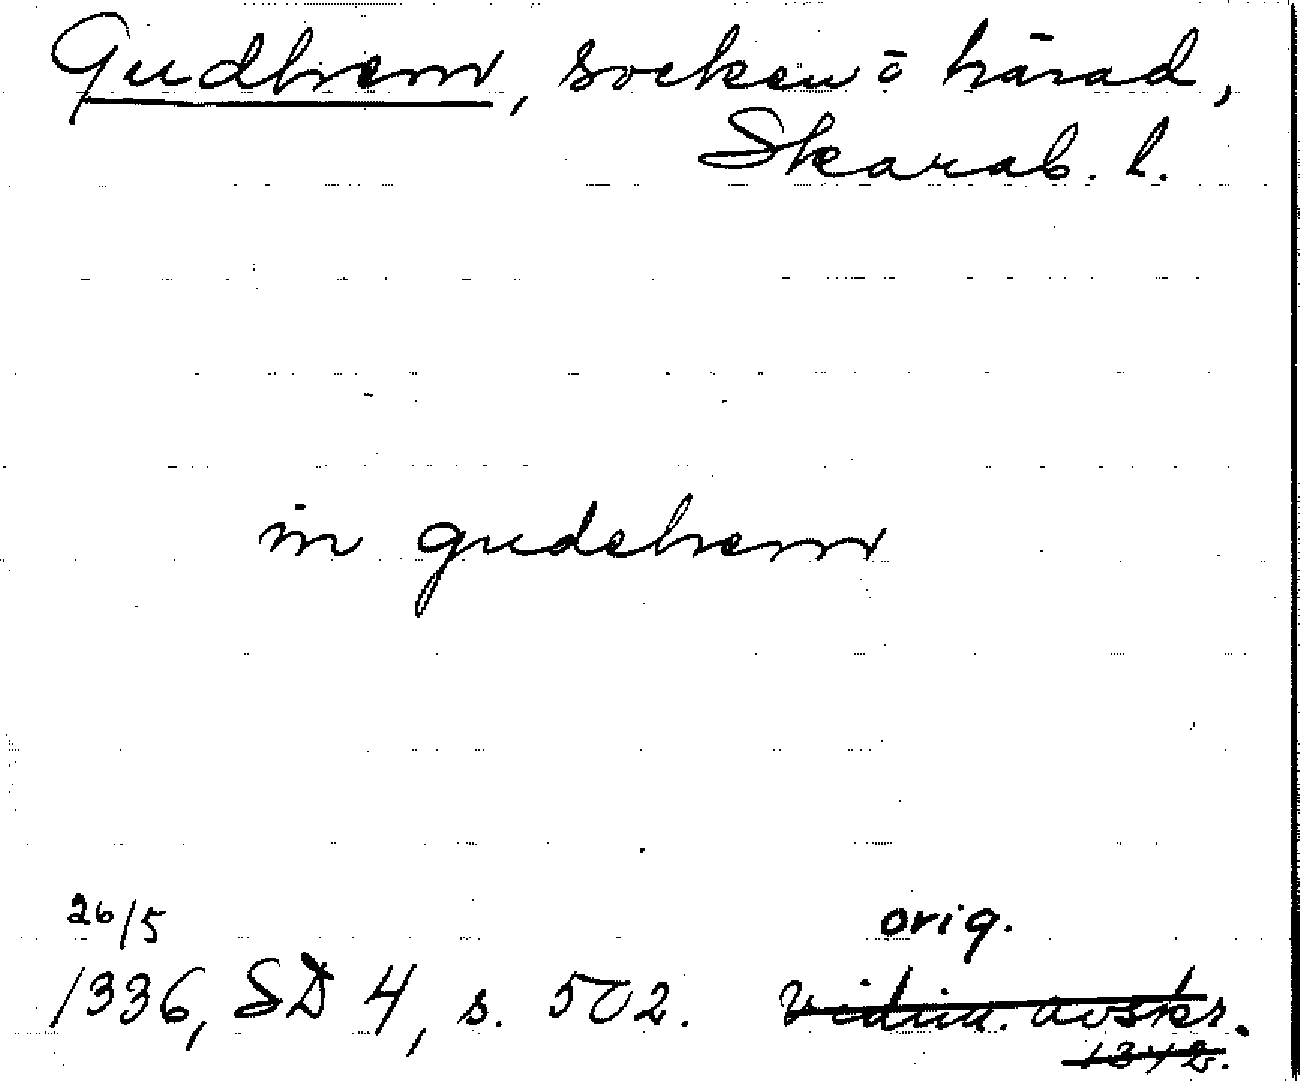 Gudhem, socken o härad,
Skarab. l.
in gudehem
26/5
orig.
1336, SD 4, s. 502. vidim. avskr.
1342.